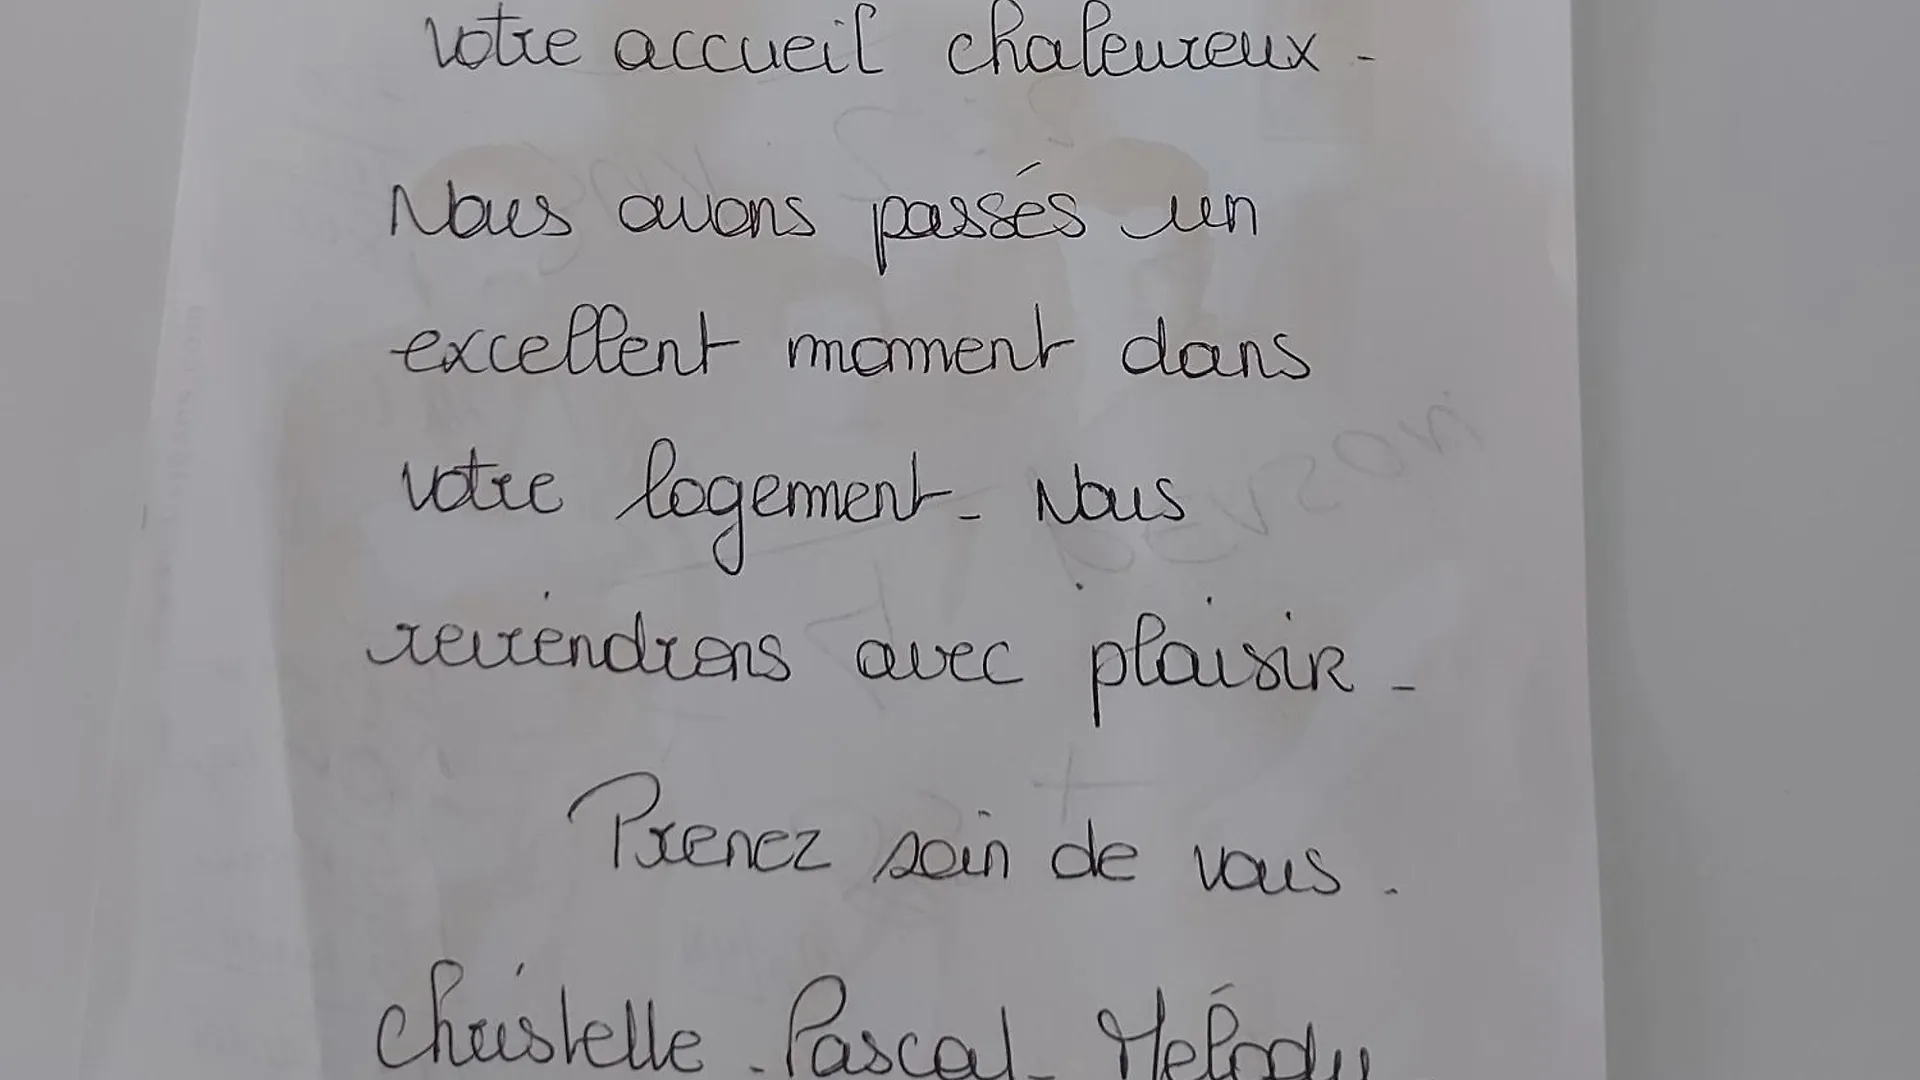 votre accueil chaleureux.
Nous avons passés un
excellent moment dans
votre logement. Nous
reviendrons avec plaisir.
Prenez soin de vous.
Christelle. Pascal. Mélody